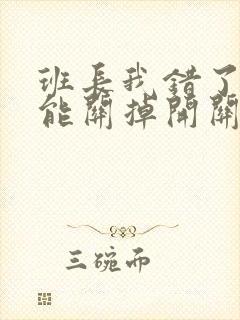 班长我错了
能關掉開關
三碗而